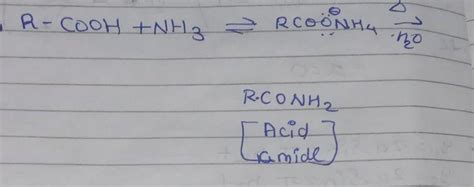 R-COOH + NH3 ⇌ RCOO⊖NH4 Δ→ -H2O
R.CONH2
[Acid
amide]